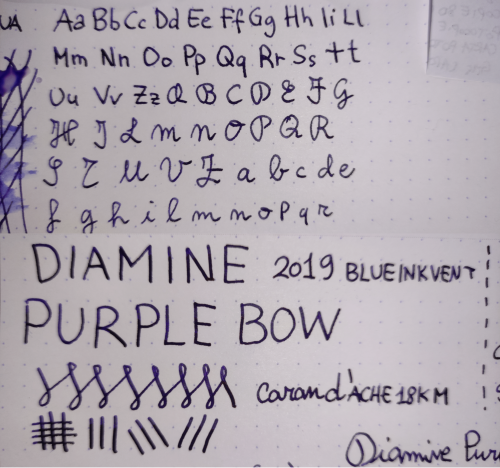 UA Aa Bb Cc Dd Ee Ff Gg Hh Ii Ll
Mm Nn Oo Pp Qq Rr Ss Tt
Uu Vv Zz A B C D E F G
H I L M N O P Q R
S T U V Z a b c d e
f g h i l m n o p q r
DIAMINE 2019 BLUE INKVENT
PURPLE BOW
Caran d'ACHE 18K M
Diamine Pur